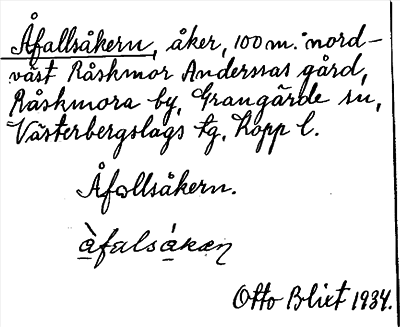 Åfallsåkern, åker, 100 m. nord-
väst Råskmor Anderssas gård,
Råskmora by, Grangärde sn,
Västerbergslags tg, Kopp l.
Åfallsåkern.
àfalsákæṇ
Otto Blixt 1934.